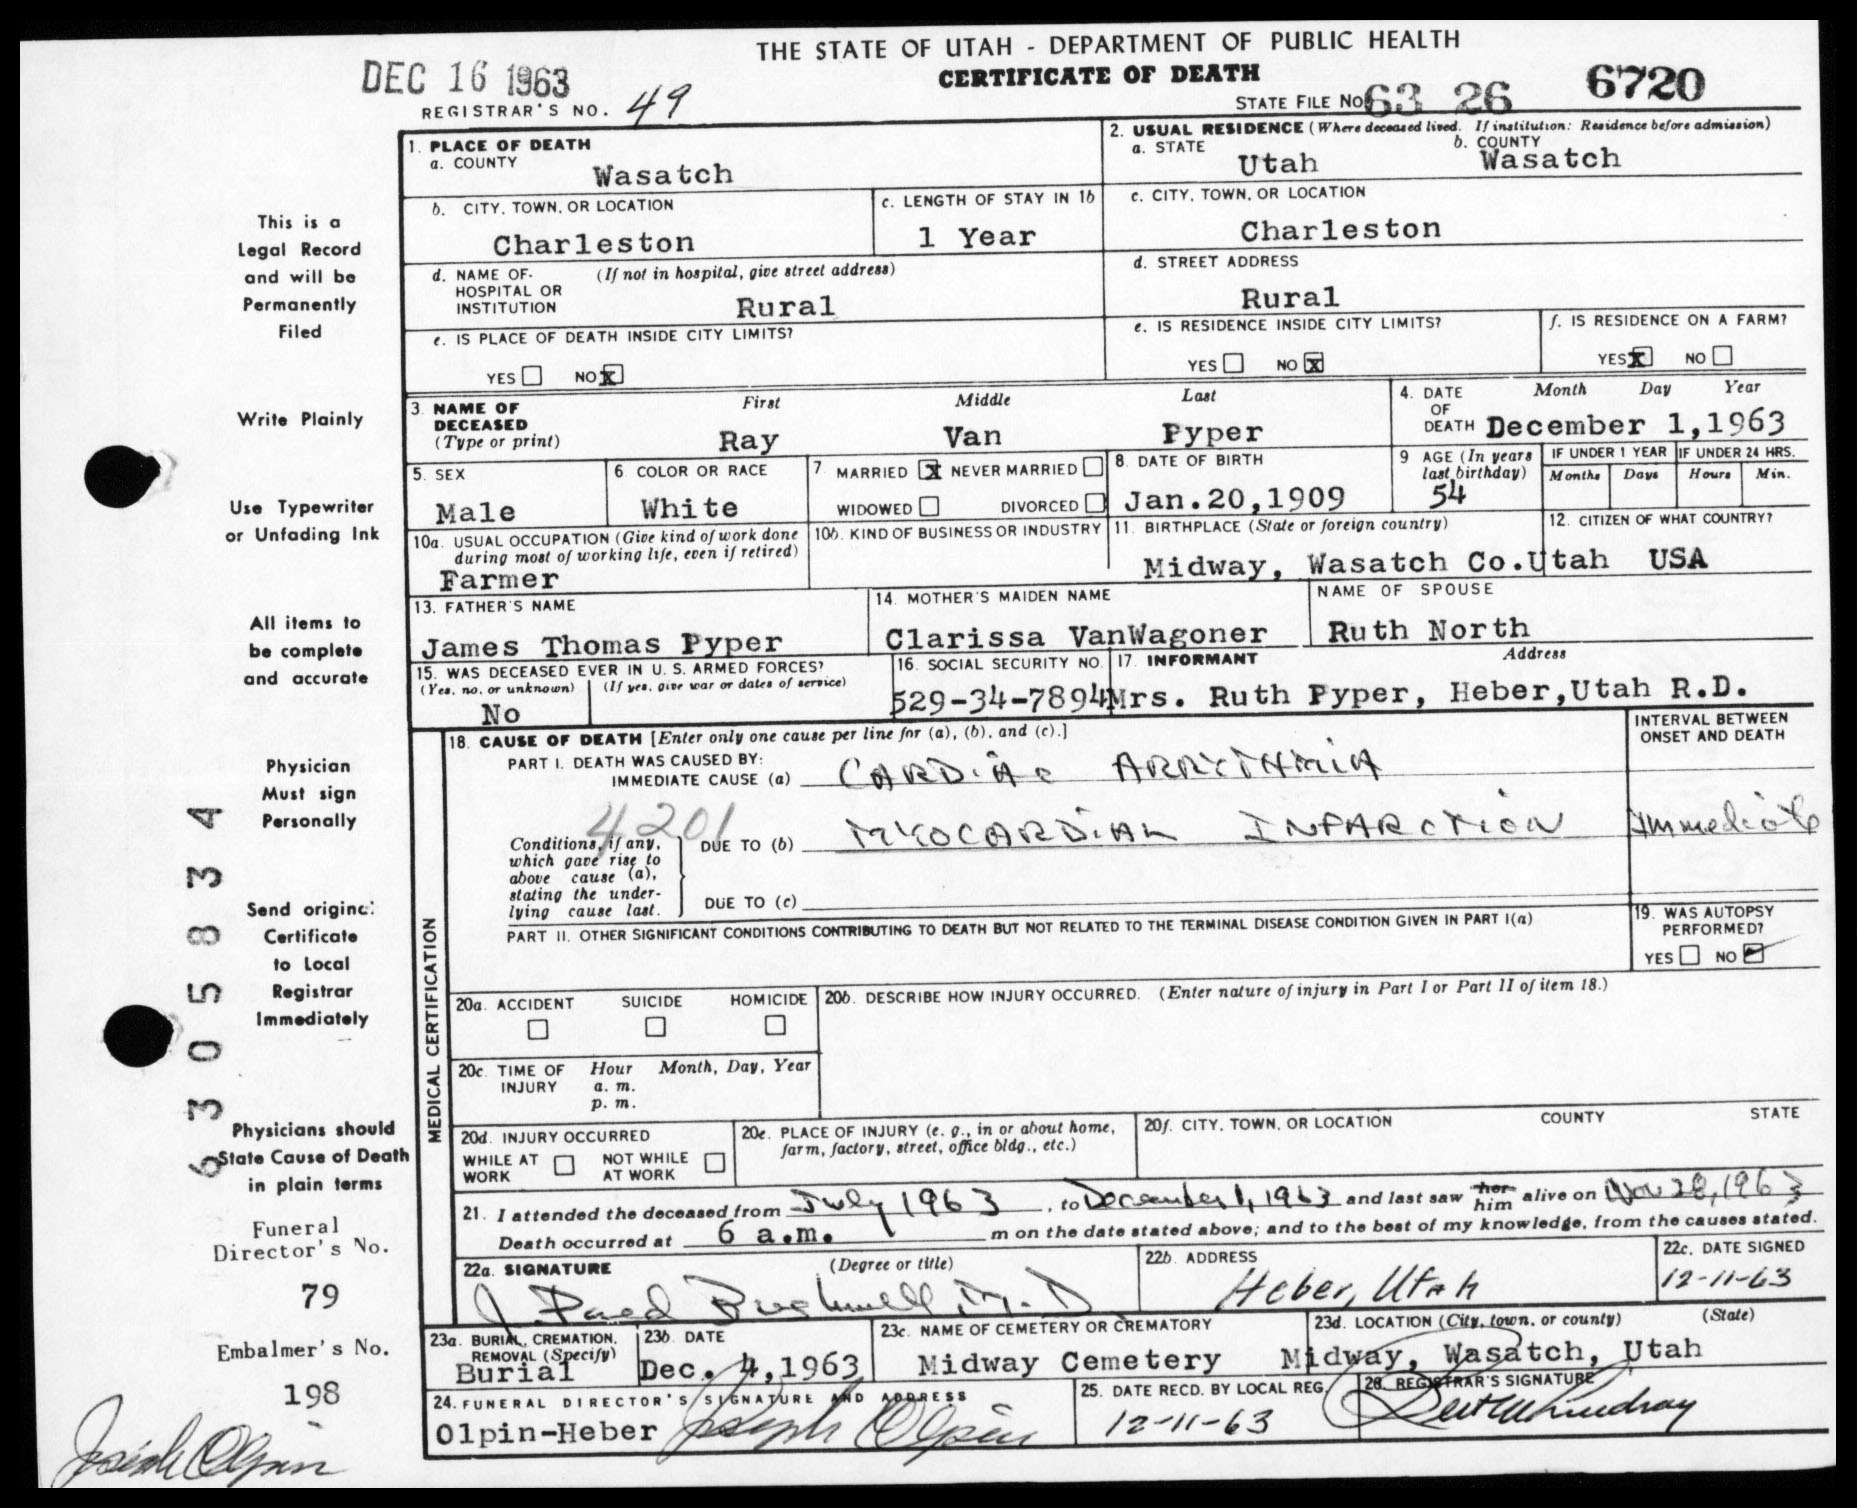 THE STATE OF UTAH - DEPARTMENT OF PUBLIC HEALTH
CERTIFICATE OF DEATH
DEC 16 1963
REGISTRAR'S NO. 49
STATE FILE NO. 63 26 6720
This is a
Legal Record
and will be
Permanently
Filed
Write Plainly
Use Typewriter
or Unfading Ink
All items to
be complete
and accurate
Physician
Must sign
Personally
Send original
Certificate
to Local
Registrar
Immediately
Physicians should
State Cause of Death
in plain terms
Funeral
Director's No.
79
Embalmer's No.
198
Joseph Olpin
6 3 0 5 8 3 3 4
1. PLACE OF DEATH
a. COUNTY
Wasatch
2. USUAL RESIDENCE (Where deceased lived. If institution: Residence before admission)
a. STATE
Utah
b. COUNTY
Wasatch
b. CITY, TOWN, OR LOCATION
Charleston
c. LENGTH OF STAY IN 1b
1 Year
c. CITY, TOWN, OR LOCATION
Charleston
d. NAME OF (If not in hospital, give street address)
HOSPITAL OR
INSTITUTION
Rural
d. STREET ADDRESS
Rural
e. IS PLACE OF DEATH INSIDE CITY LIMITS?
YES NO X
e. IS RESIDENCE INSIDE CITY LIMITS?
YES NO X
f. IS RESIDENCE ON A FARM?
YES X NO
3. NAME OF
DECEASED
(Type or print)
First Middle Last
Ray Van Pyper
4. DATE
OF
DEATH
Month Day Year
December 1,1963
5. SEX
Male
6 COLOR OR RACE
White
7. MARRIED X NEVER MARRIED
WIDOWED DIVORCED
8. DATE OF BIRTH
Jan.20,1909
9 AGE (In years
last birthday)
54
IF UNDER 1 YEAR
Months Days
IF UNDER 24 HRS.
Hours Min.
10a. USUAL OCCUPATION (Give kind of work done
during most of working life, even if retired)
Farmer
10b. KIND OF BUSINESS OR INDUSTRY
11. BIRTHPLACE (State or foreign country)
Midway, Wasatch Co.Utah
12. CITIZEN OF WHAT COUNTRY?
USA
13. FATHER'S NAME
James Thomas Pyper
14. MOTHER'S MAIDEN NAME
Clarissa VanWagoner
NAME OF SPOUSE
Ruth North
15. WAS DECEASED EVER IN U. S. ARMED FORCES?
(Yes, no, or unknown) (If yes, give war or dates of service)
No
16. SOCIAL SECURITY NO.
529-34-7894
17. INFORMANT Address
Mrs. Ruth Pyper, Heber,Utah R.D.
MEDICAL CERTIFICATION
18. CAUSE OF DEATH [Enter only one cause per line for (a), (b), and (c).]
INTERVAL BETWEEN
ONSET AND DEATH
PART I. DEATH WAS CAUSED BY:
IMMEDIATE CAUSE (a) CARDIAC ARRYTHMIA
4201
Conditions, if any,
which gave rise to
above cause (a),
stating the under-
lying cause last.
DUE TO (b) MYOCARDIAL INFARCTION Immediate
DUE TO (c)
PART II. OTHER SIGNIFICANT CONDITIONS CONTRIBUTING TO DEATH BUT NOT RELATED TO THE TERMINAL DISEASE CONDITION GIVEN IN PART I(a)
19. WAS AUTOPSY
PERFORMED?
YES NO
20a. ACCIDENT SUICIDE HOMICIDE
20b. DESCRIBE HOW INJURY OCCURRED. (Enter nature of injury in Part I or Part II of item 18.)
20c. TIME OF
INJURY
Hour Month, Day, Year
a. m.
p. m.
20d. INJURY OCCURRED
WHILE AT
WORK
NOT WHILE
AT WORK
20e. PLACE OF INJURY (e. g., in or about home,
farm, factory, street, office bldg., etc.)
20f. CITY, TOWN, OR LOCATION COUNTY STATE
21. I attended the deceased from July 1963, to December 1, 1963 and last saw her him alive on Nov 28, 1963
Death occurred at 6 a.m. m on the date stated above; and to the best of my knowledge, from the causes stated.
22a. SIGNATURE (Degree or title)
M.D.
22b. ADDRESS
Heber, Utah
22c. DATE SIGNED
12-11-63
23a. BURIAL, CREMATION,
REMOVAL (Specify)
Burial
23b. DATE
Dec. 4,1963
23c. NAME OF CEMETERY OR CREMATORY
Midway Cemetery
23d. LOCATION (City, town, or county) (State)
Midway, Wasatch, Utah
24. FUNERAL DIRECTOR'S SIGNATURE AND ADDRESS
Olpin-Heber Joseph Olpin
25. DATE RECD. BY LOCAL REG.
12-11-63
26. REGISTRAR'S SIGNATURE